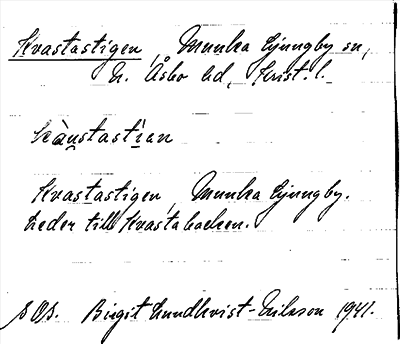 Kvastastigen, Munka Ljungby sn,
N. Åsbo hd, Krist. l.
Kvastastigen, Munka Ljungby.
Leder till Kvastabacken.
s OS. Birgit Lundkvist-Eriksson 1941.